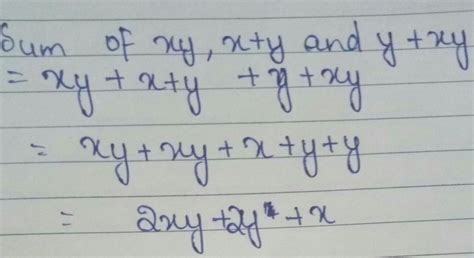 Sum of xy, x+y and y+xy
= xy + x+y + y + xy
= xy + xy + x + y + y
= 2xy + 2y + x